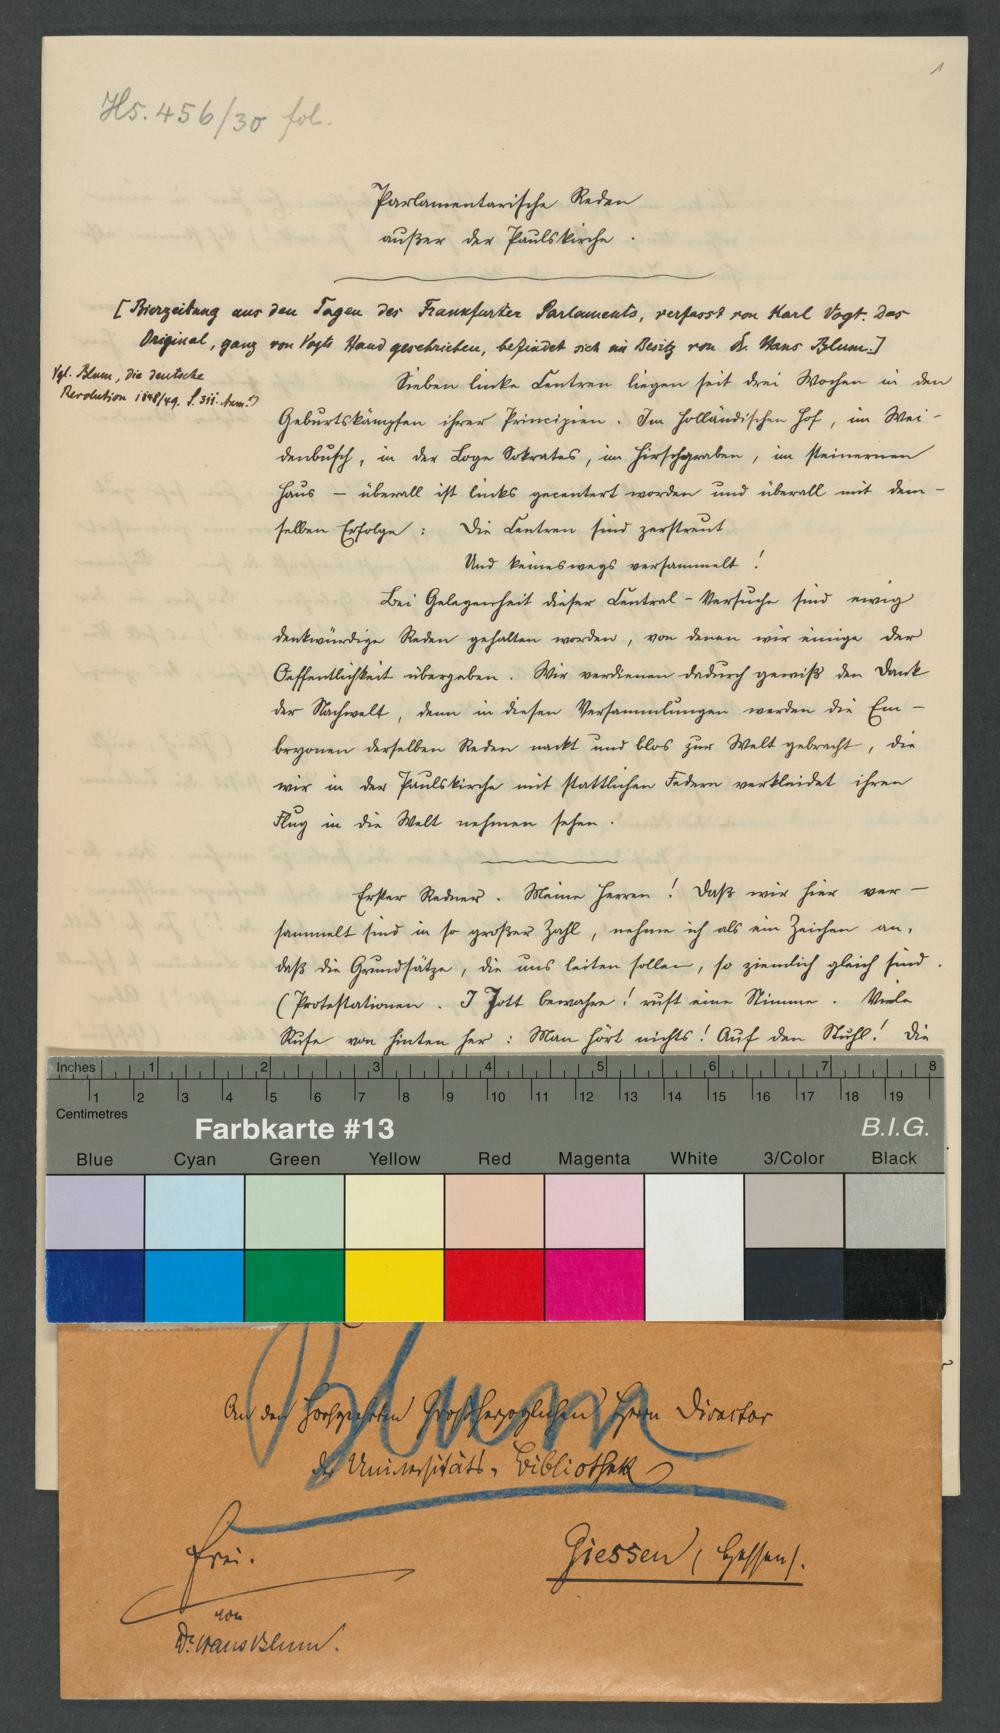 1
Hs. 456/30 fol.
Parlamentarische Reden
außer der Paulskirche.
[Bierzeitung aus den Tagen des Frankfurter Parlaments, verfasst von Karl Vogt. Das
Original, ganz von Vogts Hand geschrieben, befindet sich im Besitz von Dr. Hans Blum.]
Vgl. Blum, die deutsche
Revolution 1848/49. S. 311. Anm.)
Sieben linke Centren liegen seit drei Wochen in den
Geburtskämpfen ihrer Principien. Im Holländischen Hof, im Wei-
denbusch, in der Loge Sokrates, im Hirschgraben, im steinernen
Haus – überall ist links gecentert worden und überall mit dem-
selben Erfolge: Die Centren sind zerstreut
Und keineswegs versammelt!
Bei Gelegenheit dieser Central-Versuche sind ewig
denkwürdige Reden gehalten worden, von denen wir einige der
Oeffentlichkeit übergeben. Wir verdienen dadurch gewiß den Dank
der Nachwelt, denn in diesen Versammlungen werden die Em-
bryonen derselben Reden nackt und blos zur Welt gebracht, die
wir in der Paulskirche mit stattlichen Federn verkleidet ihren
Flug in die Welt nehmen sehen.
Erster Redner. Meine Herren! Daß wir hier ver-
sammelt sind in so großer Zahl, nehme ich als ein Zeichen an,
daß die Grundsätze, die uns leiten sollen, so ziemlich gleich sind.
(Protestationen. I Jott bewahre! ruft eine Stimme. Viele
Rufe von hinten her: Man hört nichts! Auf den Stuhl! Die
Inches 1 2 3 4 5 6 7 8
1 2 3 4 5 6 7 8 9 10 11 12 13 14 15 16 17 18 19
Centimetres
Farbkarte #13 B.I.G.
Blue Cyan Green Yellow Red Magenta White 3/Color Black
Blum
An den Hochgeehrten Großherzoglichen Herrn Director
der Universitäts-Bibliothek
Frei.
Giessen (Hessen).
von
Dr. Hans Blum.